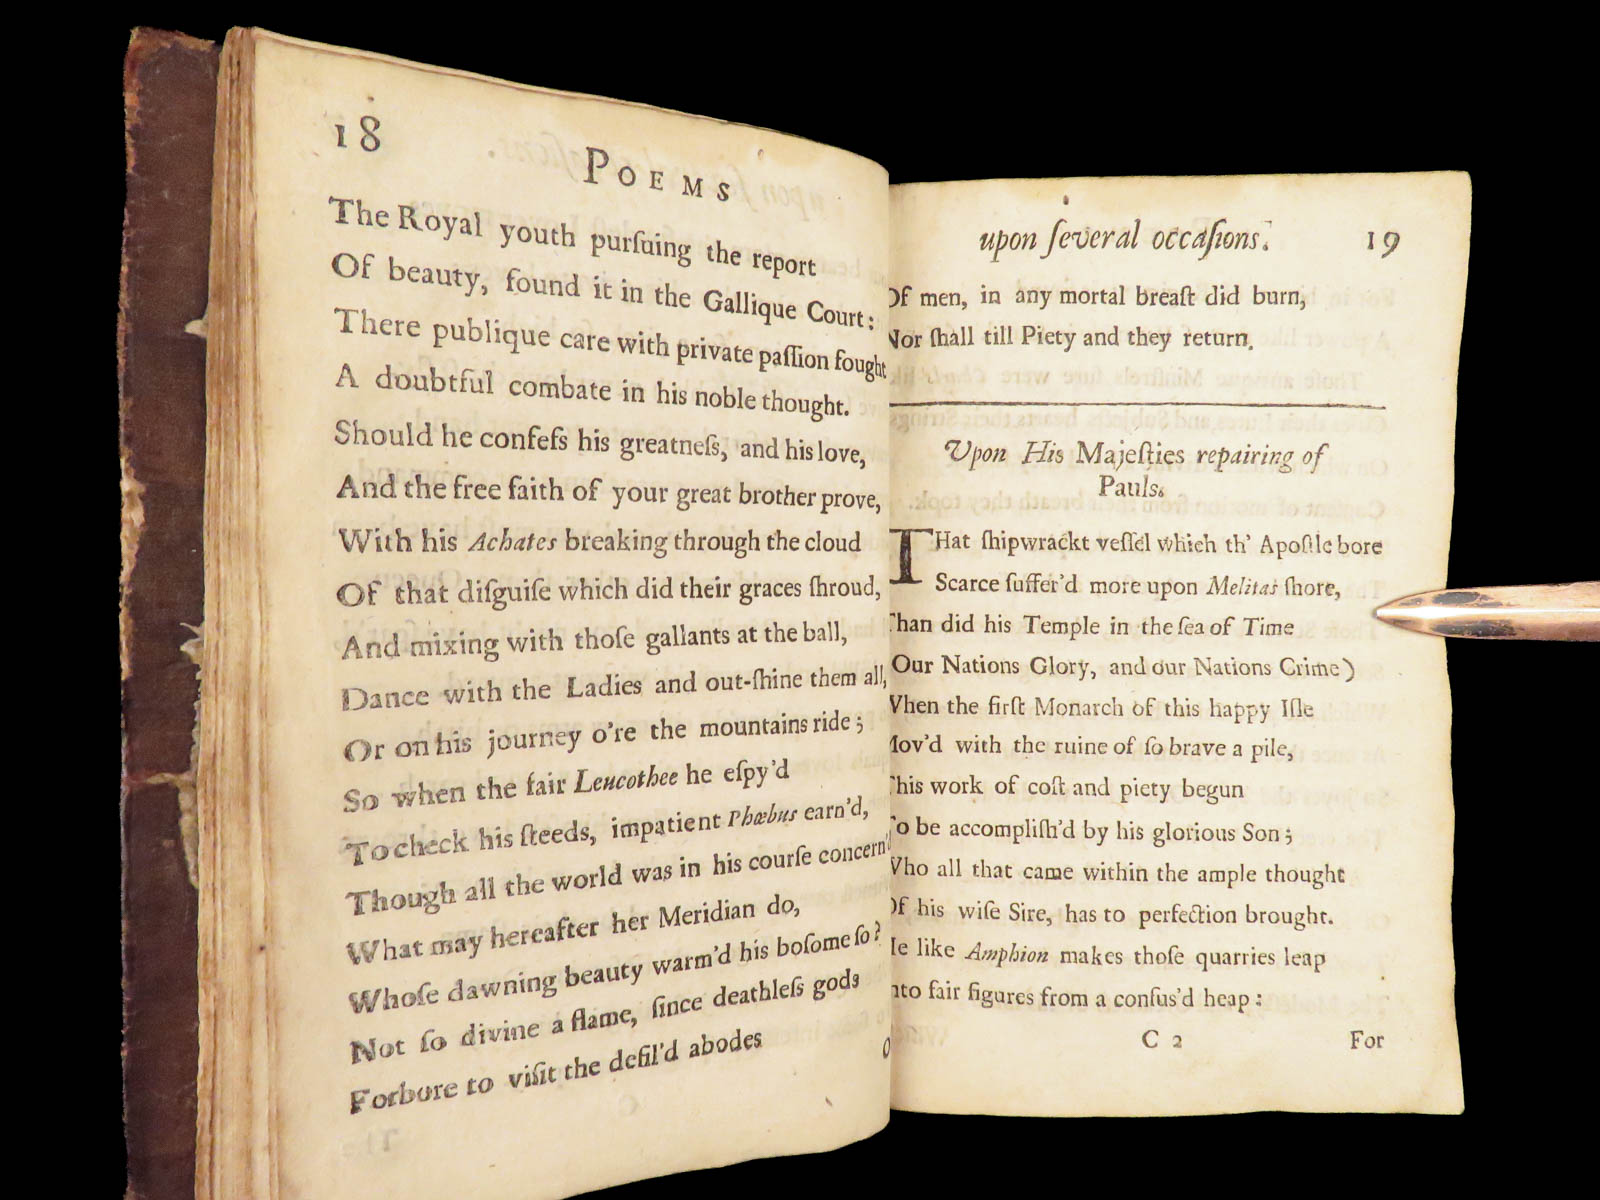 18
POEMS
The Royal youth purſuing the report
Of beauty, found it in the Gallique Court:
There publique care with private paſſion fought
A doubtful combate in his noble thought.
Should he confeſs his greatneſs, and his love,
And the free faith of your great brother prove,
With his Achates breaking through the cloud
Of that diſguiſe which did their graces ſhroud,
And mixing with thoſe gallants at the ball,
Dance with the Ladies and out-ſhine them all,
Or on his journey o're the mountains ride;
So when the fair Leucothee he eſpy'd
To check his ſteeds, impatient Phœbus earn'd,
Though all the world was in his courſe concern'
What may hereafter her Meridian do,
Whoſe dawning beauty warm'd his boſome ſo?
Not ſo divine a flame, ſince deathleſs gods
Forbore to viſit the defil'd abodes
upon ſeveral occaſions. 19
Of men, in any mortal breaſt did burn,
Nor ſhall till Piety and they return.
Upon His Majeſties repairing of
Pauls.
THat ſhipwrackt veſſel which th' Apoſtle bore
Scarce ſuffer'd more upon Melitas ſhore,
Than did his Temple in the ſea of Time
Our Nations Glory, and our Nations Crime)
When the firſt Monarch of this happy Iſle
Mov'd with the ruine of ſo brave a pile,
This work of coſt and piety begun
To be accompliſh'd by his glorious Son;
Who all that came within the ample thought
Of his wiſe Sire, has to perfection brought.
He like Amphion makes thoſe quarries leap
Into fair figures from a confus'd heap:
C 2 For